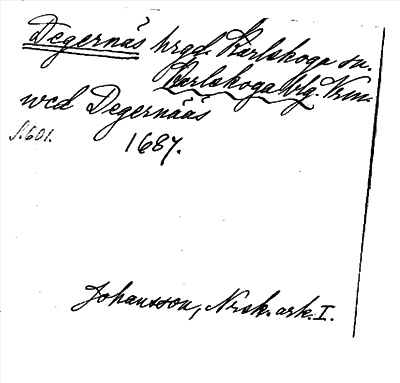 Degernäs hrgd. Karlskoga sn.
Karlskoga blg. Vrm.
wed Degernääs
s. 601. 1687.
Johansson, Nrsk. ark. I.